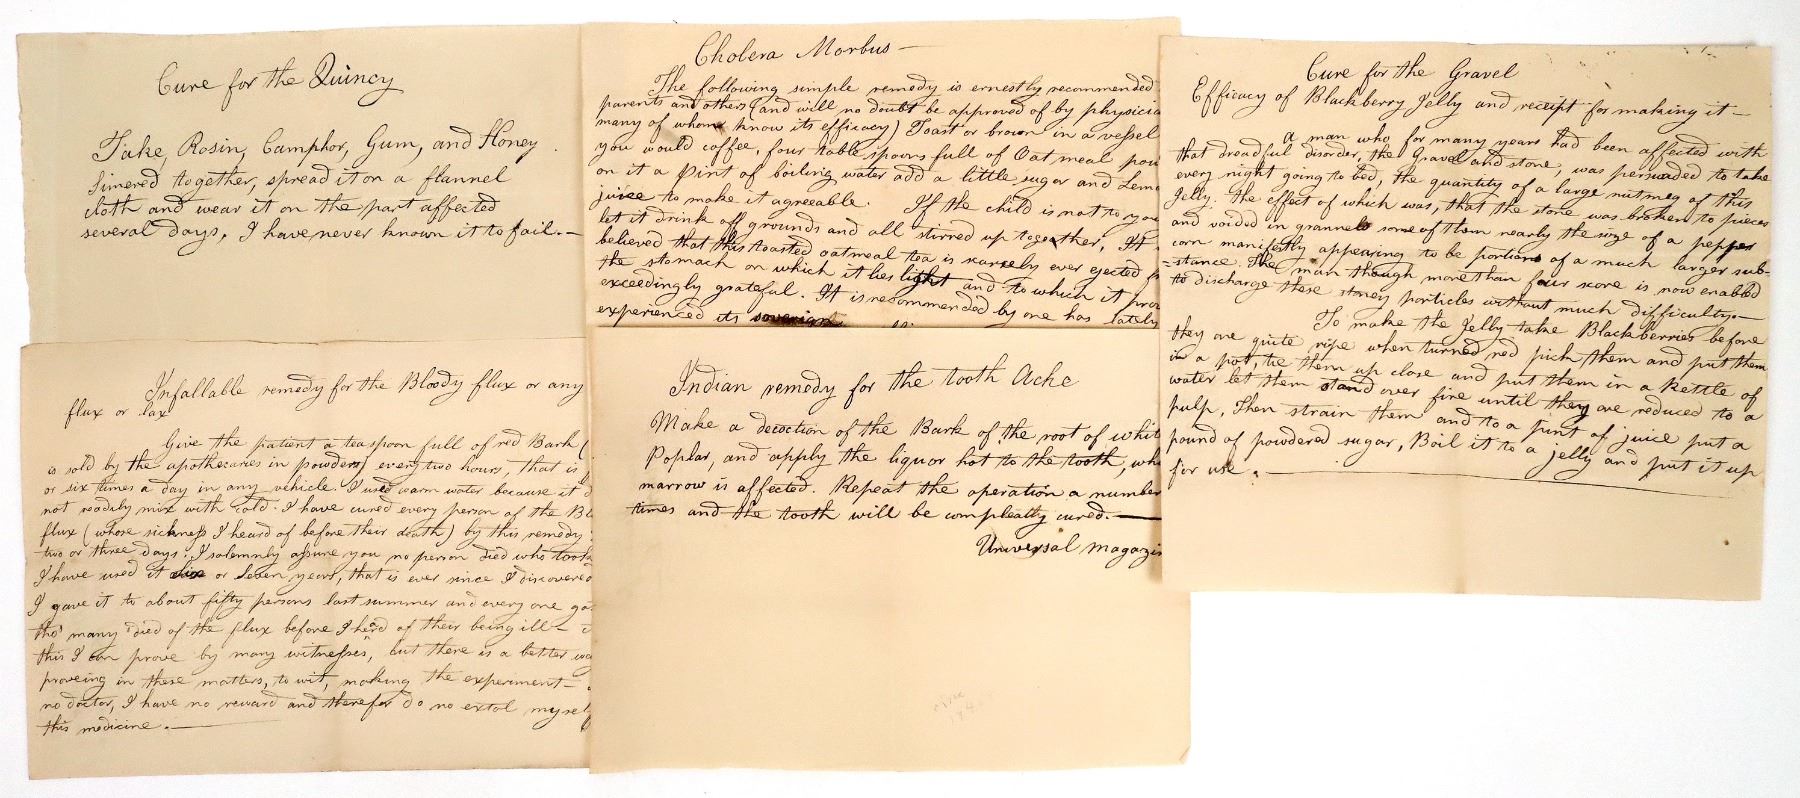 Cure for the Quincy
Take, Rosin, Camphor, Gum, and Honey.
Simered together, spread it on a flannel
cloth and wear it on the part affected
several days, I have never known it to fail.—
Cholera Morbus—
The following simple remedy is ernestly recommended
parents and others (and will no doubt be approved of by physicia
many of whom know its efficacy) Toast or brown in a vessel
you would coffee, four table spoons full of Oat meal pou
on it a pint of boiling water add a little sugar and Lem
juice to make it agreeable. If the child is not to you
let it drink off grounds and all stirred up together, It
believed that this toasted oatmeal tea is scarsely ever ejected f
the stomach on which it lies light and to which it pro
exceedingly grateful. It is recommended by one has lately
experienced its soverign
Cure for the Gravel
Efficacy of Blackberry Jelly and receipt for making it—
a man who for many years had been affected with
that dreadful disorder, the Gravel and stone, was persuaded to take
every night going to bed, the quantity of a large nutmeg of this
Jelly. the effect of which was, that the stone was broken to pieces
and voided in grannels some of them nearly the size of a pepper
corn manifestly appearing to be portions of a much larger sub-
=stance. The man though more than four score is now enabled
to discharge these stoney particles without much difficulty.—
To make the Jelly take Blackberries before
they are quite ripe when turned red pick them and put them
in a pot, tie them up close and put them in a Kettle of
water let them stand over fire until they are reduced to a
pulp, Then strain them and to a pint of juice put a
pound of powdered sugar, Boil it to a jelly and put it up
for use.
Infallable remedy for the Bloody flux or any
flux or lax
Give the patient a teaspoon full of red Bark (
is sold by the apothecaries in powders) every two hours, that is
or six times a day in any vehicle. I used warm water because it
not readily mix with cold. I have cured every person of the Bl
flux (whose sickness I heard of before their death) by this remedy
two or three days. I solemnly assure you no person died who took
I have used it six or seven years, that is ever since I discovered
I gave it to about fifty persons last summer and every one go
tho' many died of the flux before I heard of their being ill—
this I can prove by many witnesses, but there is a better wa
proveing in these matters, to wit, making the experiment—
no doctor, I have no reward and therefor do no extol myself
this medicine.—
Indian remedy for the tooth Ache
Make a decoction of the Bark of the root of whit
Poplar, and apply the liquor hot to the tooth, whe
marrow is affected. Repeat the operation a number
times and the tooth will be compleatly cured.—
Universal magazi